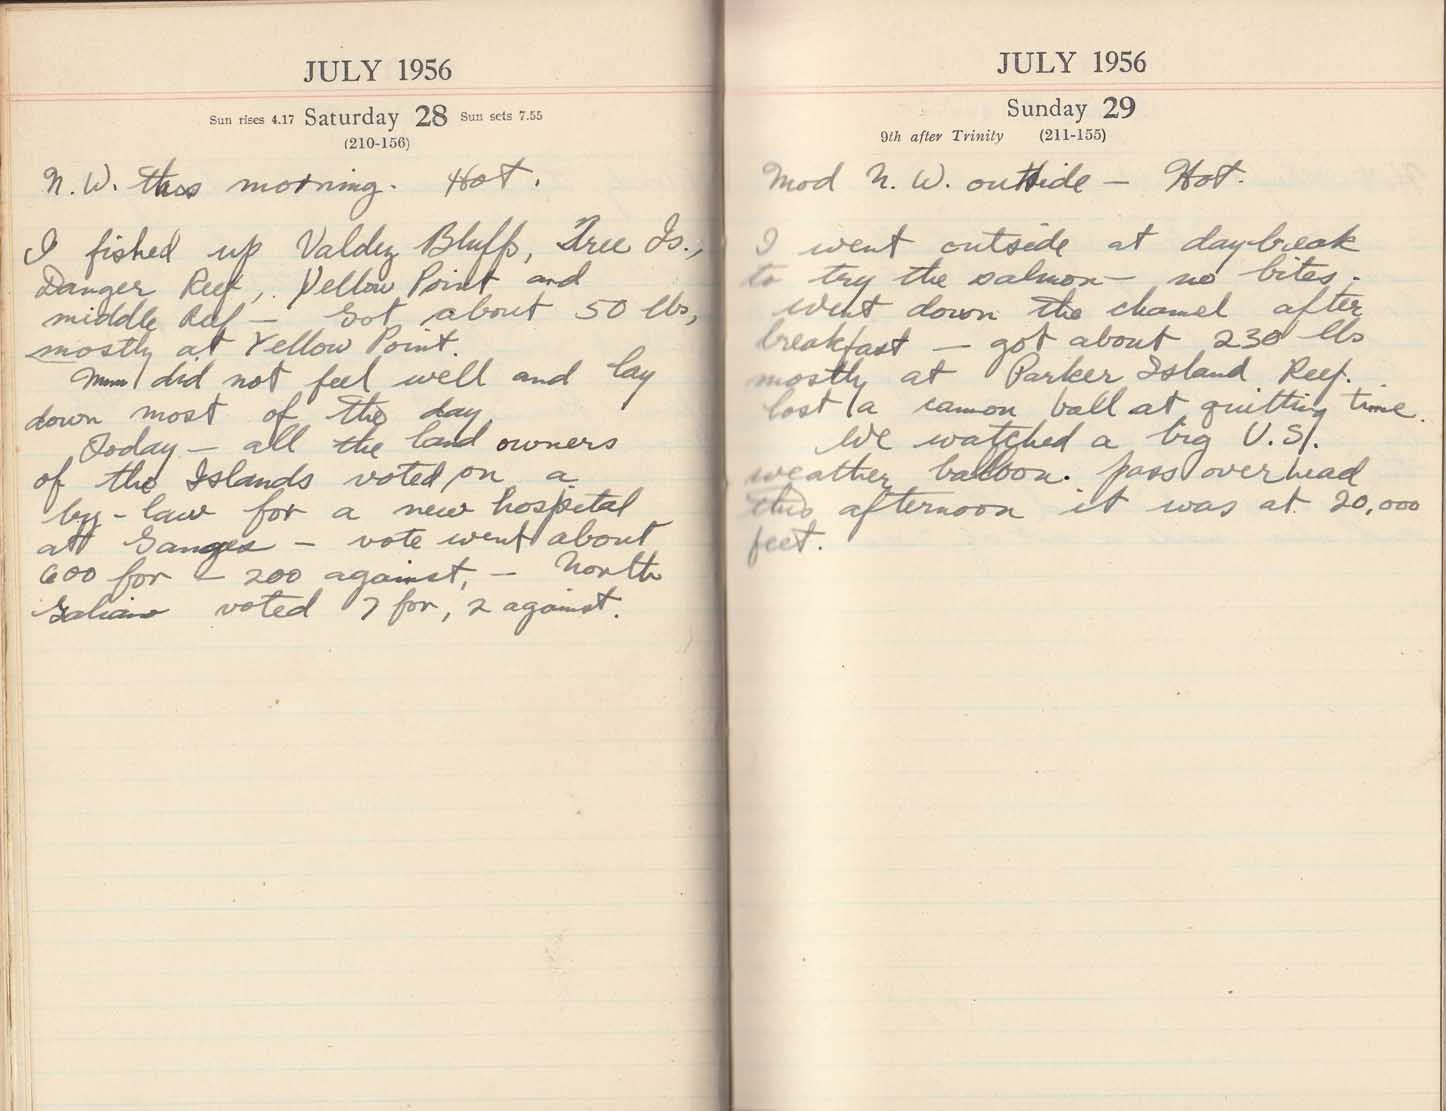 JULY 1956
Sun rises 4.17 Saturday 28 Sun sets 7.55
(210-156)
N.W. this morning. Hot.
I fished up Valdez Bluffs, Tree Is.,
Danger Reef, Yellow Point and
middle Reef - Got about 50 lbs,
mostly at Yellow Point.
Mum did not feel well and lay
down most of the day
Today - all the land owners
of the Islands voted on a
by-law for a new hospital
at Ganges - vote went about
600 for - 200 against, - North
Galiano voted 7 for, 2 against.
JULY 1956
Sunday 29
9th after Trinity (211-155)
Mod N.W. outside - Hot.
I went outside at daybreak
to try the salmon - no bites.
Went down the channel after
breakfast - got about 230 lbs
mostly at Parker Island Reef.
Lost a cannon ball at quitting time.
We watched a big U.S.
weather balloon. pass overhead
this afternoon it was at 20,000
feet.